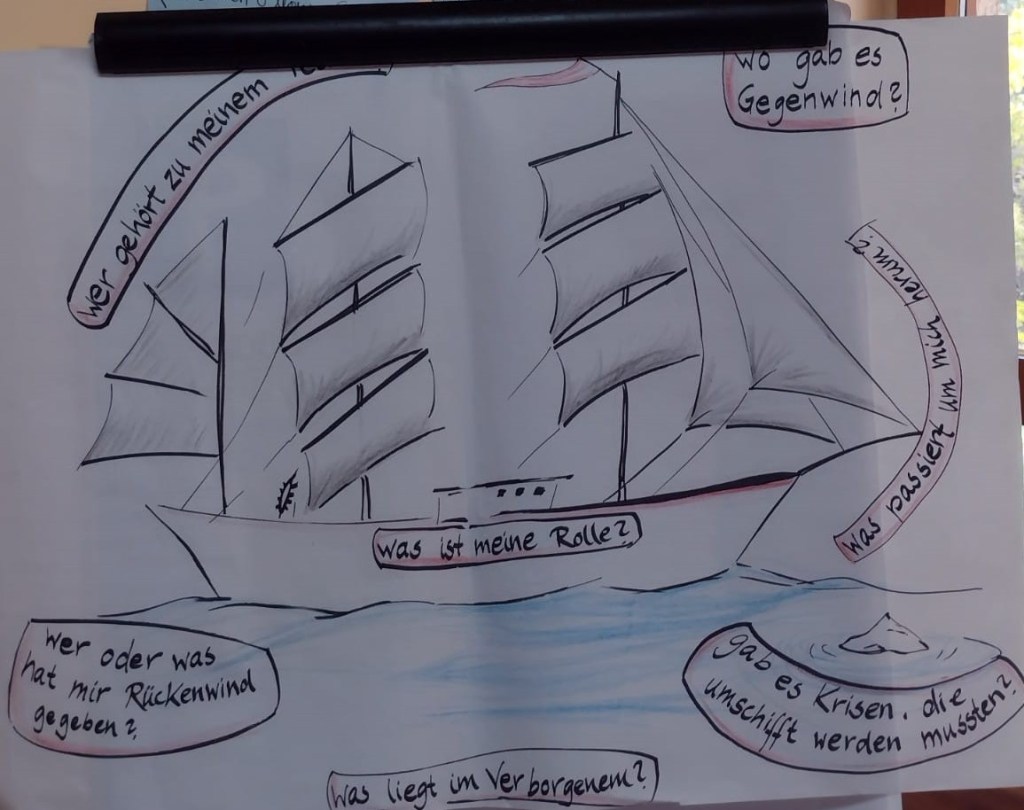 wer gehört zu meinem
wo gab es
Gegenwind?
was passiert um mich herum?
was ist meine Rolle?
wer oder was
hat mir Rückenwind
gegeben?
gab es Krisen, die
umschifft werden mussten?
Was liegt im Verborgenem?